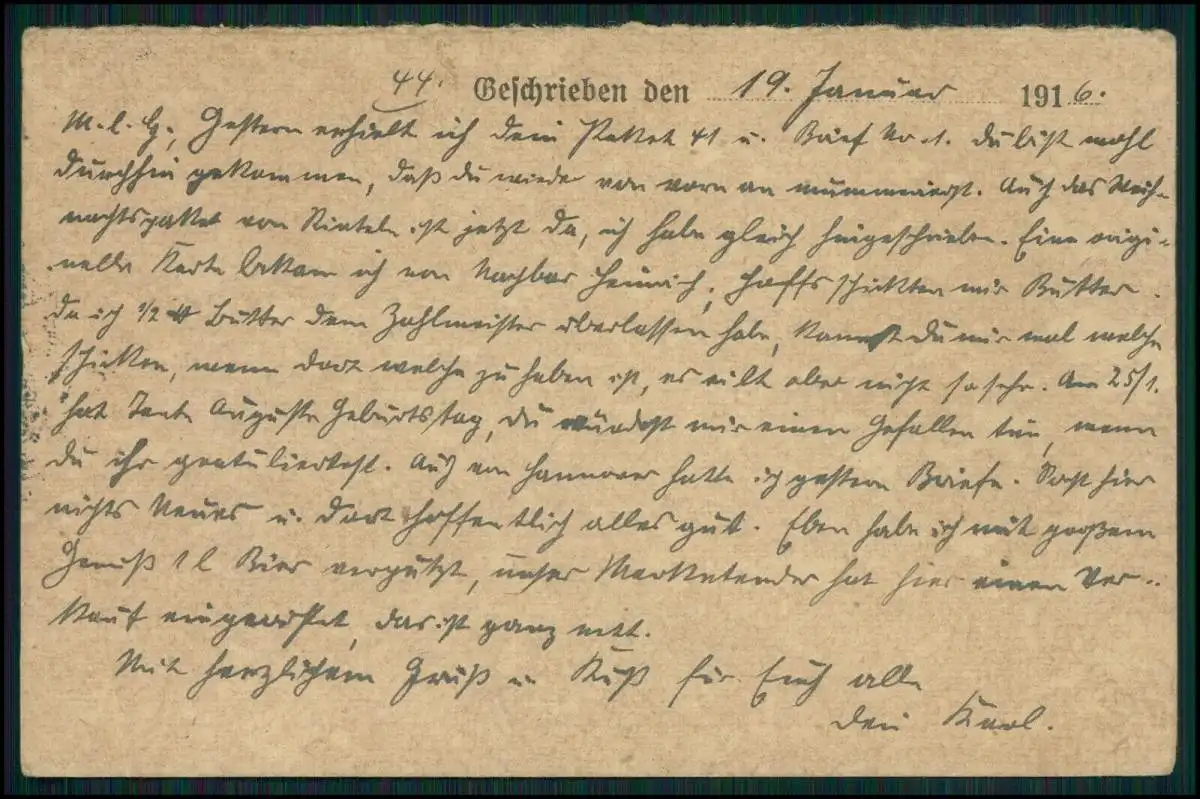 44. Geschrieben den 19. Januar 1916.
M. l. G., Gestern erhielt ich dein Paket 41 u. Brief No 1. Du bist wohl
durchhin gekommen, daß du wieder von vorn an nummerierst. Auch das Weih-
nachtspaket von Rinteln ist jetzt da, ich habe gleich hingeschrieben. Eine origi-
nelle Karte bekam ich von Nachbar Heinrich, Hoffs schickten mir Butter.
Da ich 1/2 ℔ Butter dem Zahlmeister überlassen habe, kannst Du mir mal welche
schicken, wenn dort welche zu haben ist, es eilt aber nicht so sehr. Am 25/1.
hat Tante Auguste Geburtstag, du würdest mir einen Gefallen tun, wenn
du ihr gratuliertest. Auch von Hannover hatte ich gestern Briefe. Sonst hier
nichts Neues u. dort hoffentlich alles gut. Eben habe ich mit großem
Genuß 1 l Bier verputzt, unser Marketender hat hier einen Ver-
kauf eingerichtet, das ist ganz nett.
Mit herzlichem Gruß u Kuß für Euch alle
Dein Karl.